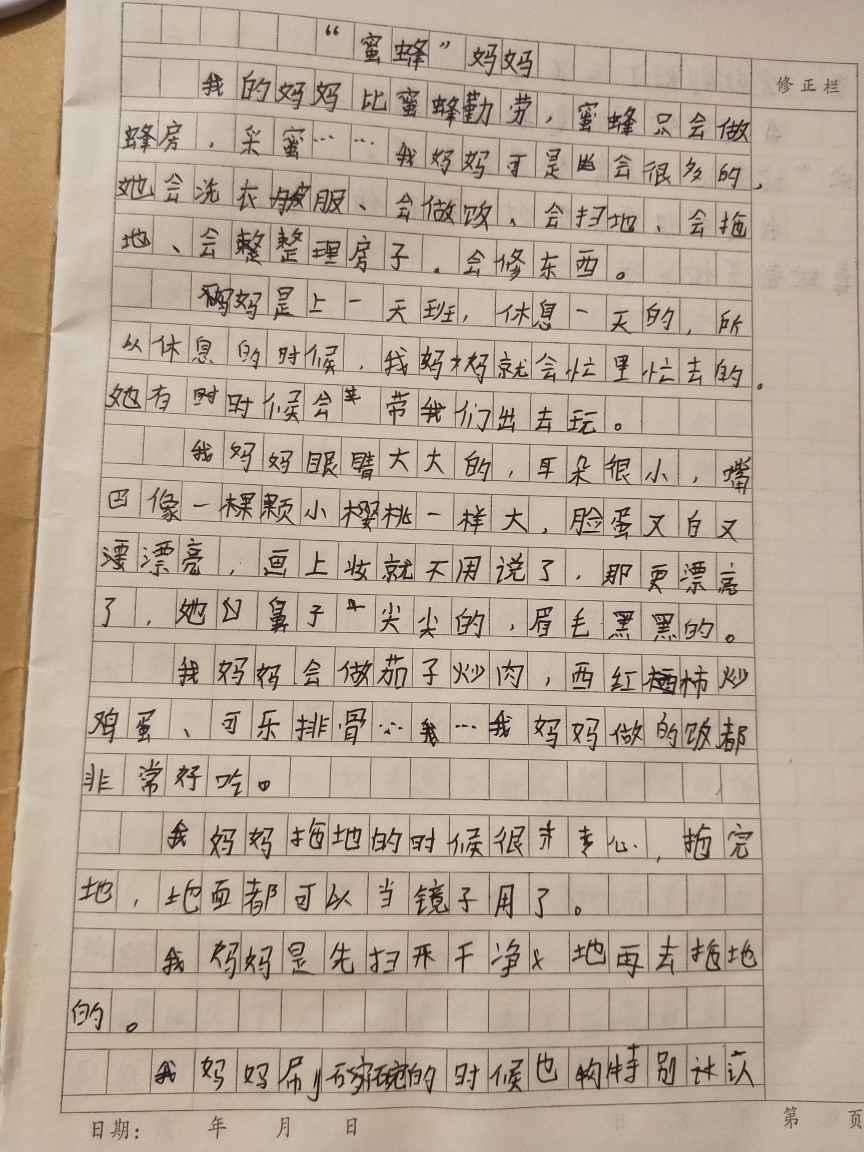 “蜜蜂”妈妈
修正栏
我的妈妈比蜜蜂勤劳,蜜蜂只会做
蜂房,采蜜……我妈妈可是会很多的,
她会洗衣服、会做饭、会扫地、会拖
地、会整整理房子。会修东西。
妈妈是上一天班,休息一天的,所
以休息的时候,我妈妈就会忙里忙去的。
她有时时候会带我们出去玩。
我妈妈眼睛大大的,耳朵很小,嘴
巴像一棵颗小樱桃一样大,脸蛋又白又
漂亮,画上妆就不用说了,那更漂亮
了,她鼻子尖尖的,眉毛黑黑的。
我妈妈会做茄子炒肉,西红柿炒
鸡蛋、可乐排骨……我妈妈做的饭都
非常好吃。
我妈妈拖地的时候很专心,拖完
地,地面都可以当镜子用了。
我妈妈是先扫干净地再去拖地
的。
我妈妈刷碗的时候也特别认
日期: 年 月 日
第 页